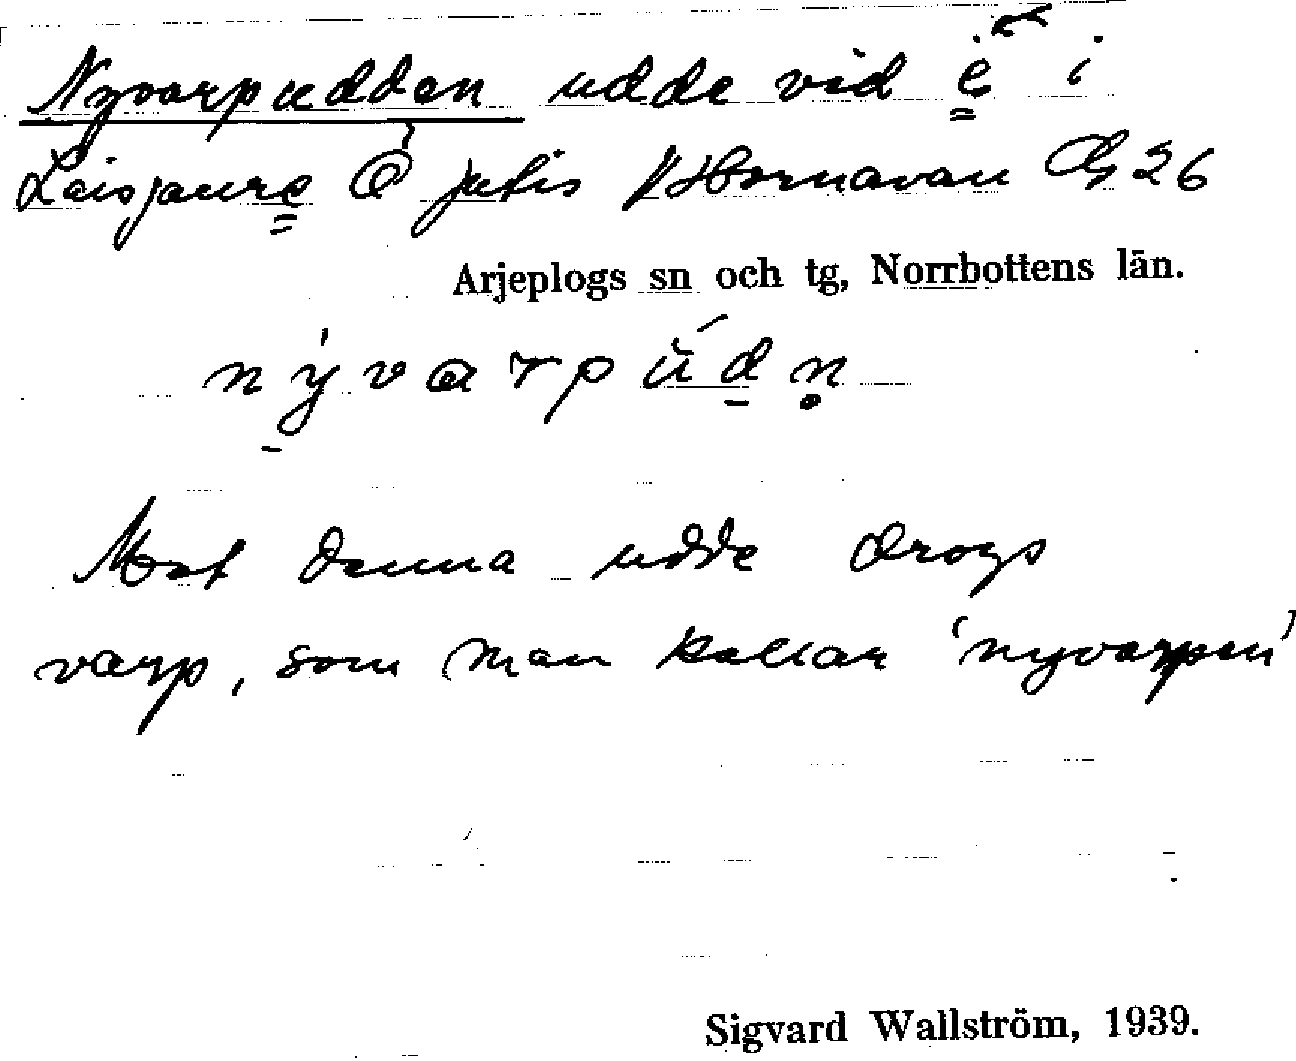 Nyvarpudden udde vid e i
Laisjaure Ö Jutis / Hornavan Cg 26
Arjeplogs sn och tg, Norrbottens län.
nývarpúdn̥
Mot denna udde drogs
varp, som man kallar 'nyvarpen'
Sigvard Wallström, 1939.